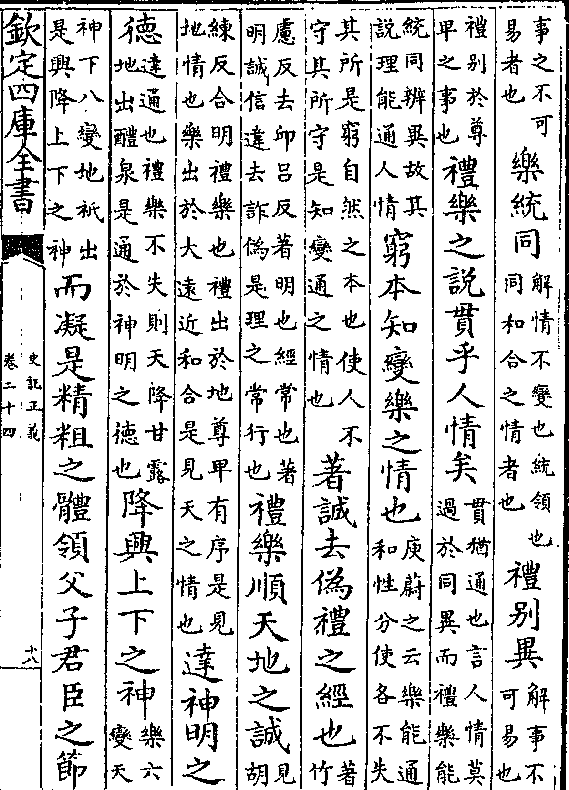 事之不可易者也樂統同解情不變也統領也同和合之情者也禮别異解事不可易也
禮别於尊卑之事也禮樂之說貫乎人情矣貫猶通也言人情莫過於同異而禮樂能
統同辨異故其說理能通人情窮本知變樂之情也庾蔚之云樂能通和性分使各不失
其所是窮自然之本也使人不守其所守是知變通之情也著誠去偽禮之經也著竹
慮反去邱吕反著明也經常也著明誠信違去詐偽是理之常行也禮樂順天地之誠見胡
練反合明禮樂也禮出於地尊卑有序是見地情也樂出於大遠近和合是見天之情也達神明之
德達通也禮樂不失則天降甘露地出醴泉是通於神明之德也降興上下之神樂六變天
神下八變地祇出是興降上下之神而凝是精粗之體領父子君臣之節
欽定四庫全書
史記正義
卷二十四
十八